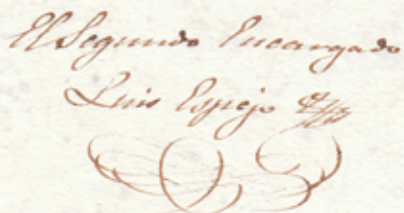 El Segundo Encargado
Luis Espejo